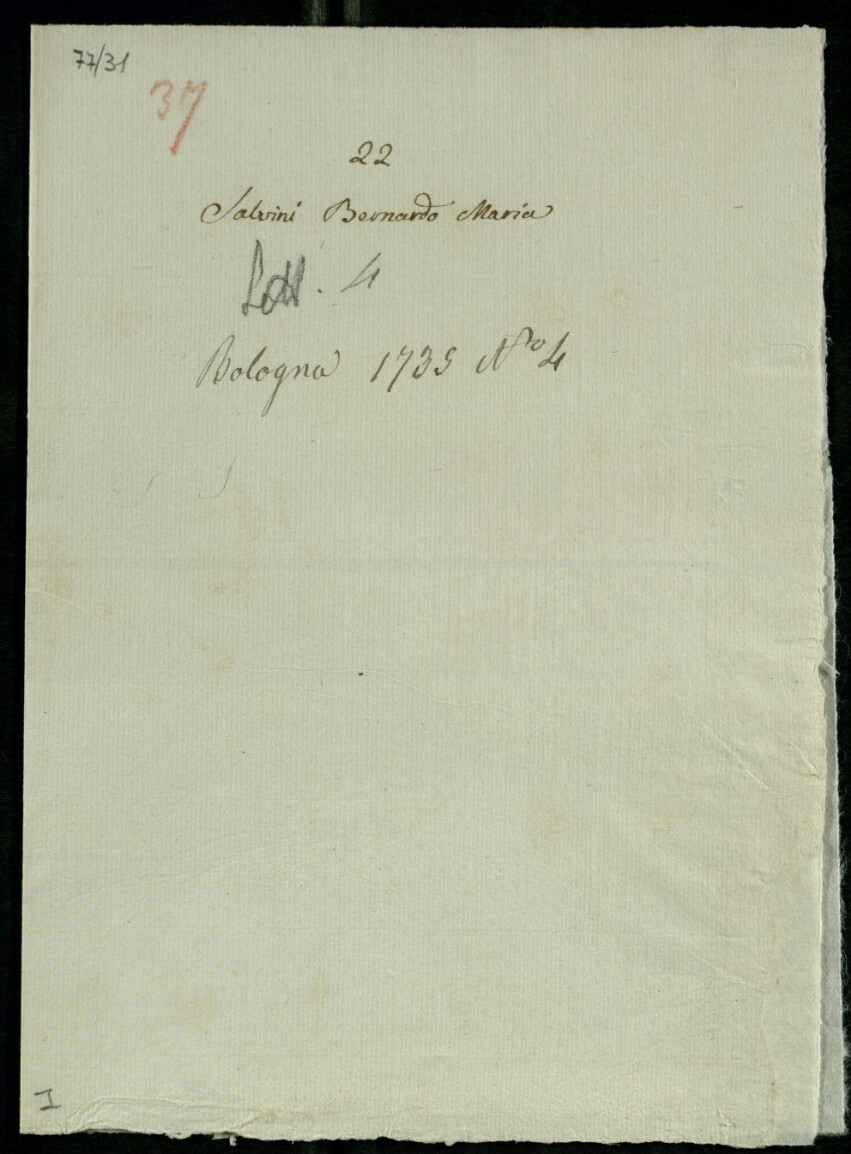 77/31
37
22
Salvini Bernardo Maria
Lett. 4
Bologna 1735 Nro 4
I